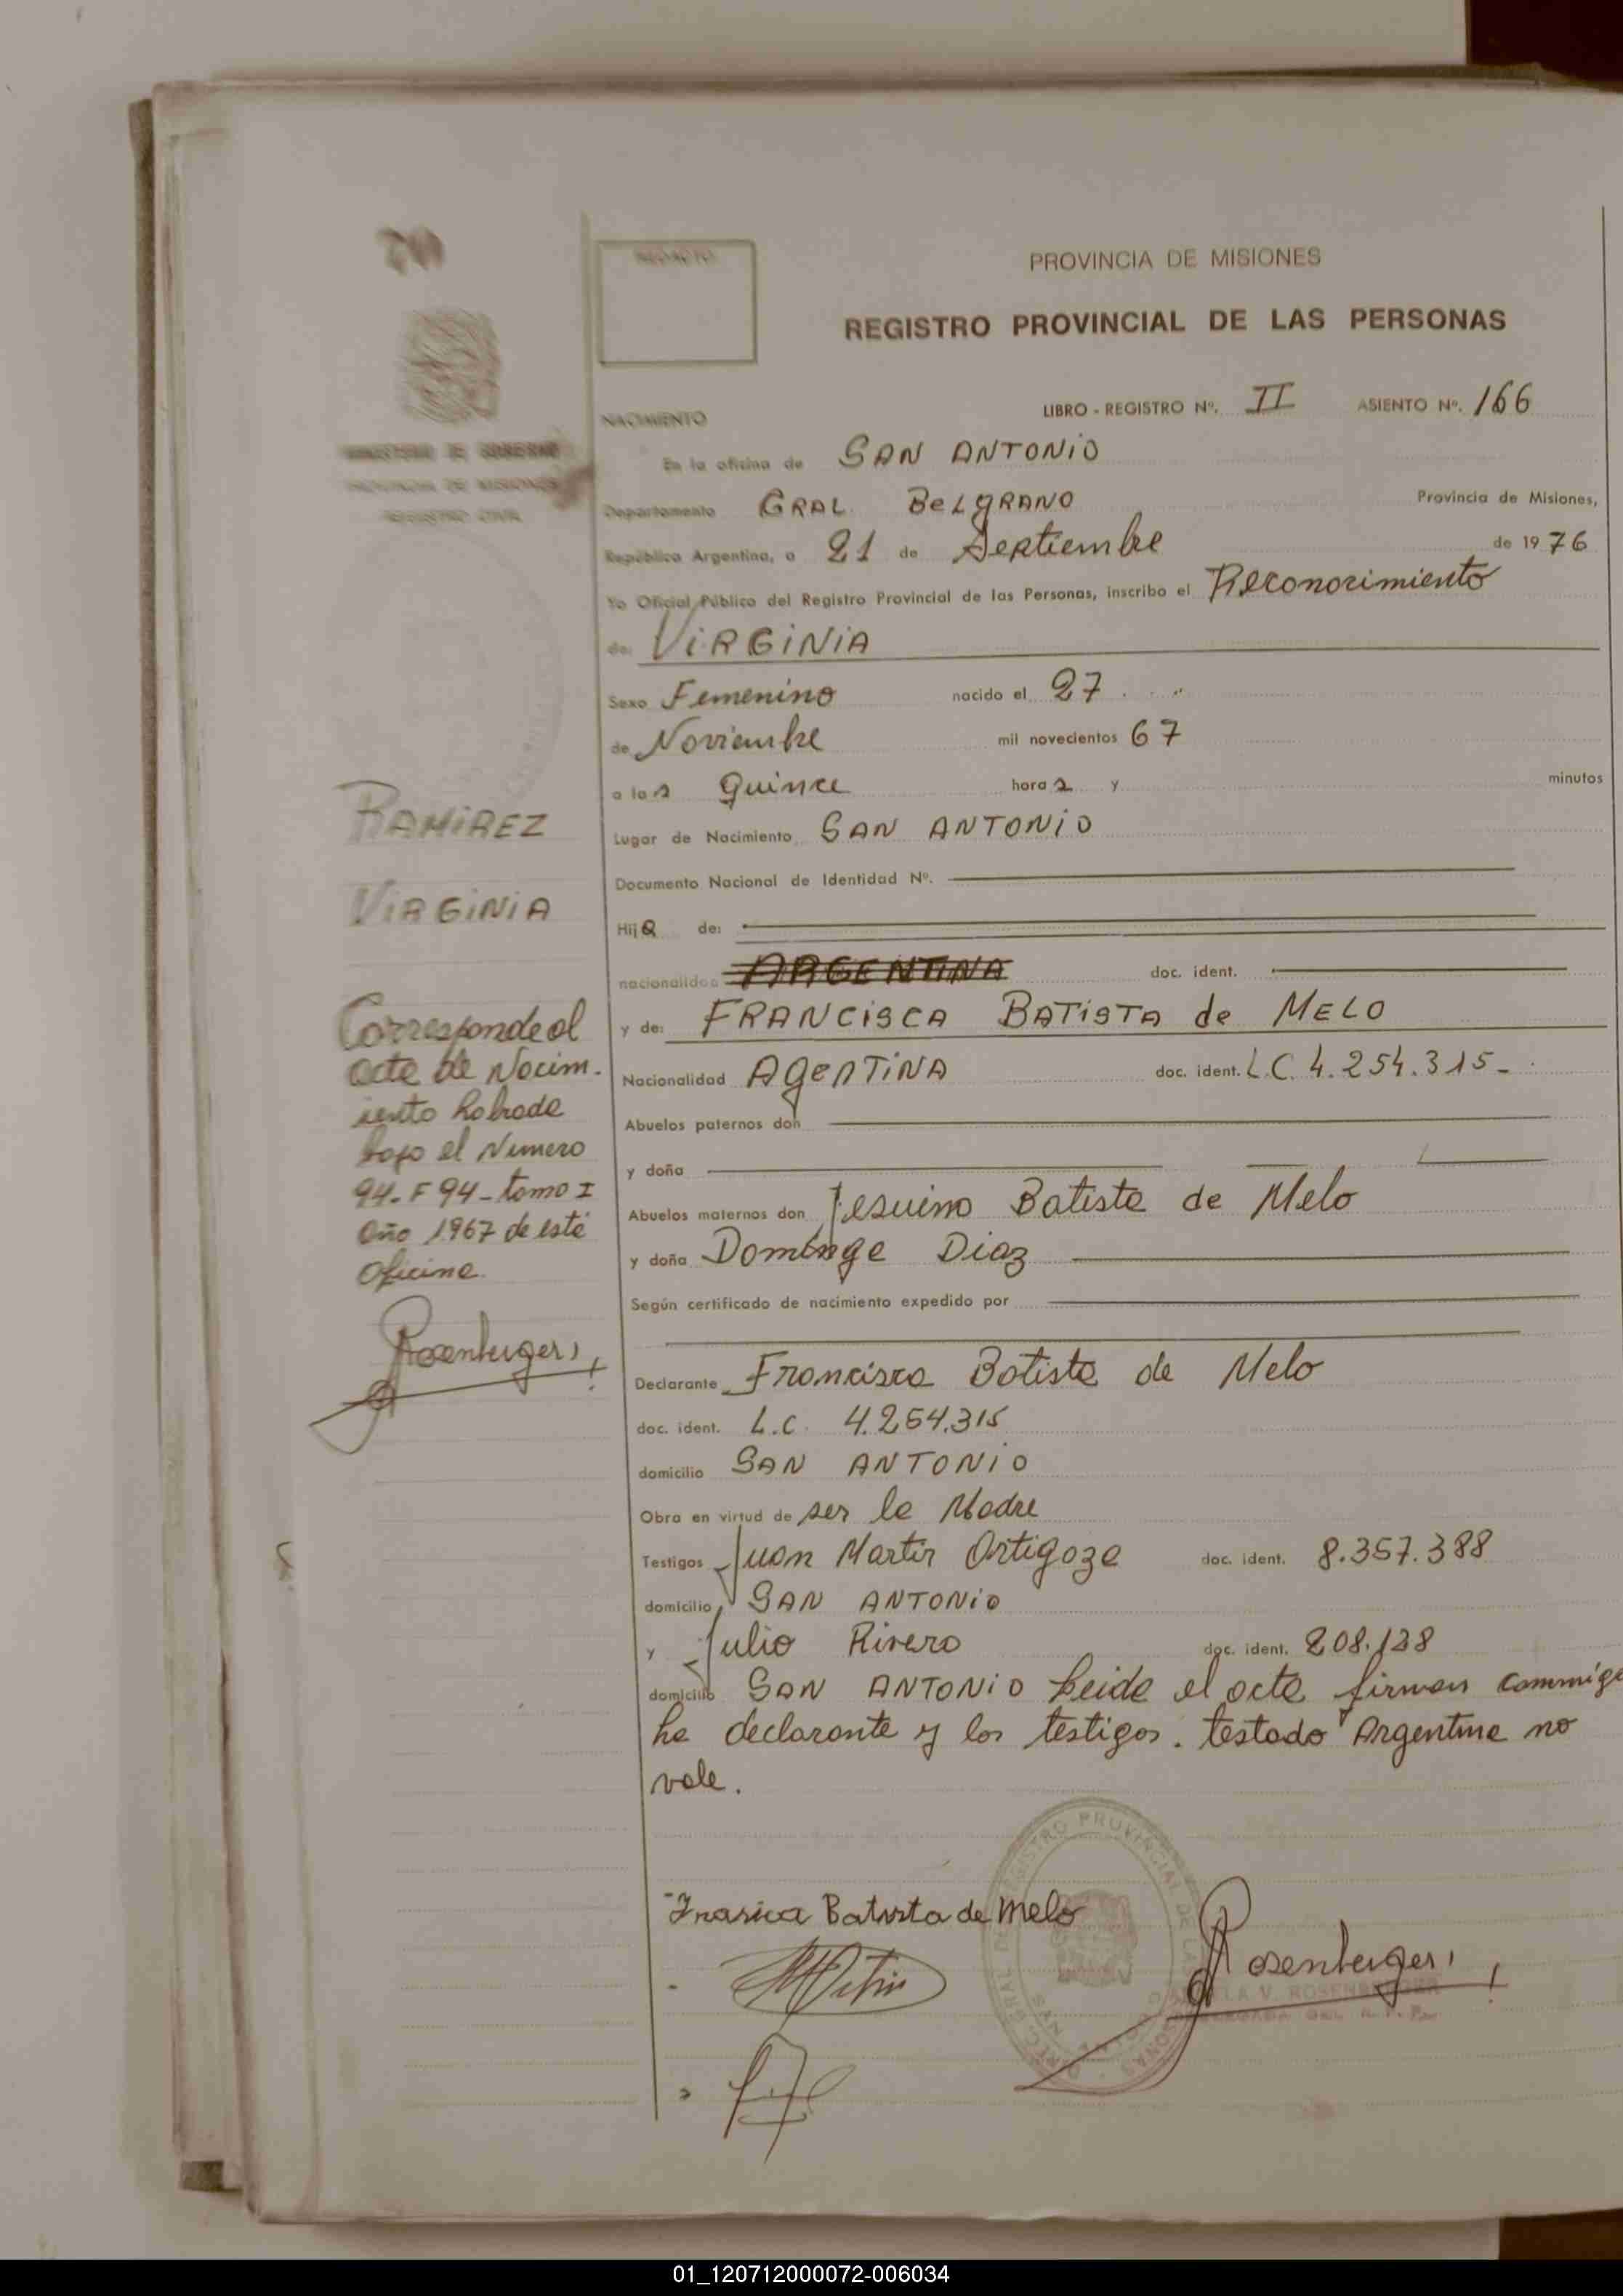 PROVINCIA DE MISIONES
REGISTRO PROVINCIAL DE LAS PERSONAS
MINISTERIO DE GOBIERNO
PROVINCIA DE MISIONES
REGISTRO CIVIL
NACIMIENTO LIBRO - REGISTRO Nº. II ASIENTO Nº. 166
En la oficina de SAN ANTONIO
Departamento GRAL BELGRANO Provincia de Misiones,
República Argentina, a 21 de Septiembre de 1976
Yo Oficial Público del Registro Provincial de las Personas, inscribo el Reconocimiento
de: VIRGINIA
Sexo Femenino nacido el 27
de Noviembre mil novecientos 67
a las Quince horas y minutos
Lugar de Nacimiento SAN ANTONIO
Documento Nacional de Identidad Nº.
Hija de:
nacionalidad ARGENTINA doc. ident.
y de: FRANCISCA BATISTA de MELO
Nacionalidad AGENTINA doc. ident. L.C. 4.254.315-
Abuelos paternos don
y doña
Abuelos maternos don Jesuino Batista de Melo
y doña Dominga Diaz
Según certificado de nacimiento expedido por
Declarante Francisca Batista de Melo
doc. ident. L.C. 4.254.315
domicilio SAN ANTONIO
Obra en virtud de ser la Madre
Testigos Juan Martir Ortigoza doc. ident. 8.357.388
domicilio SAN ANTONIO
y Julio Rivero doc. ident. 208.128
domicilio SAN ANTONIO Leida el acta firman conmigo
la declarante y los testigos. testado Argentina no
vale.
RAMIREZ
VIRGINIA
Corresponde al
acta de Nacim-
iento labrada
bajo el Numero
94- F 94- tomo I
año 1967 de esta
oficina
Rosenberger
Frasica Batista de Melo
Rosenberger
01_120712000072-006034